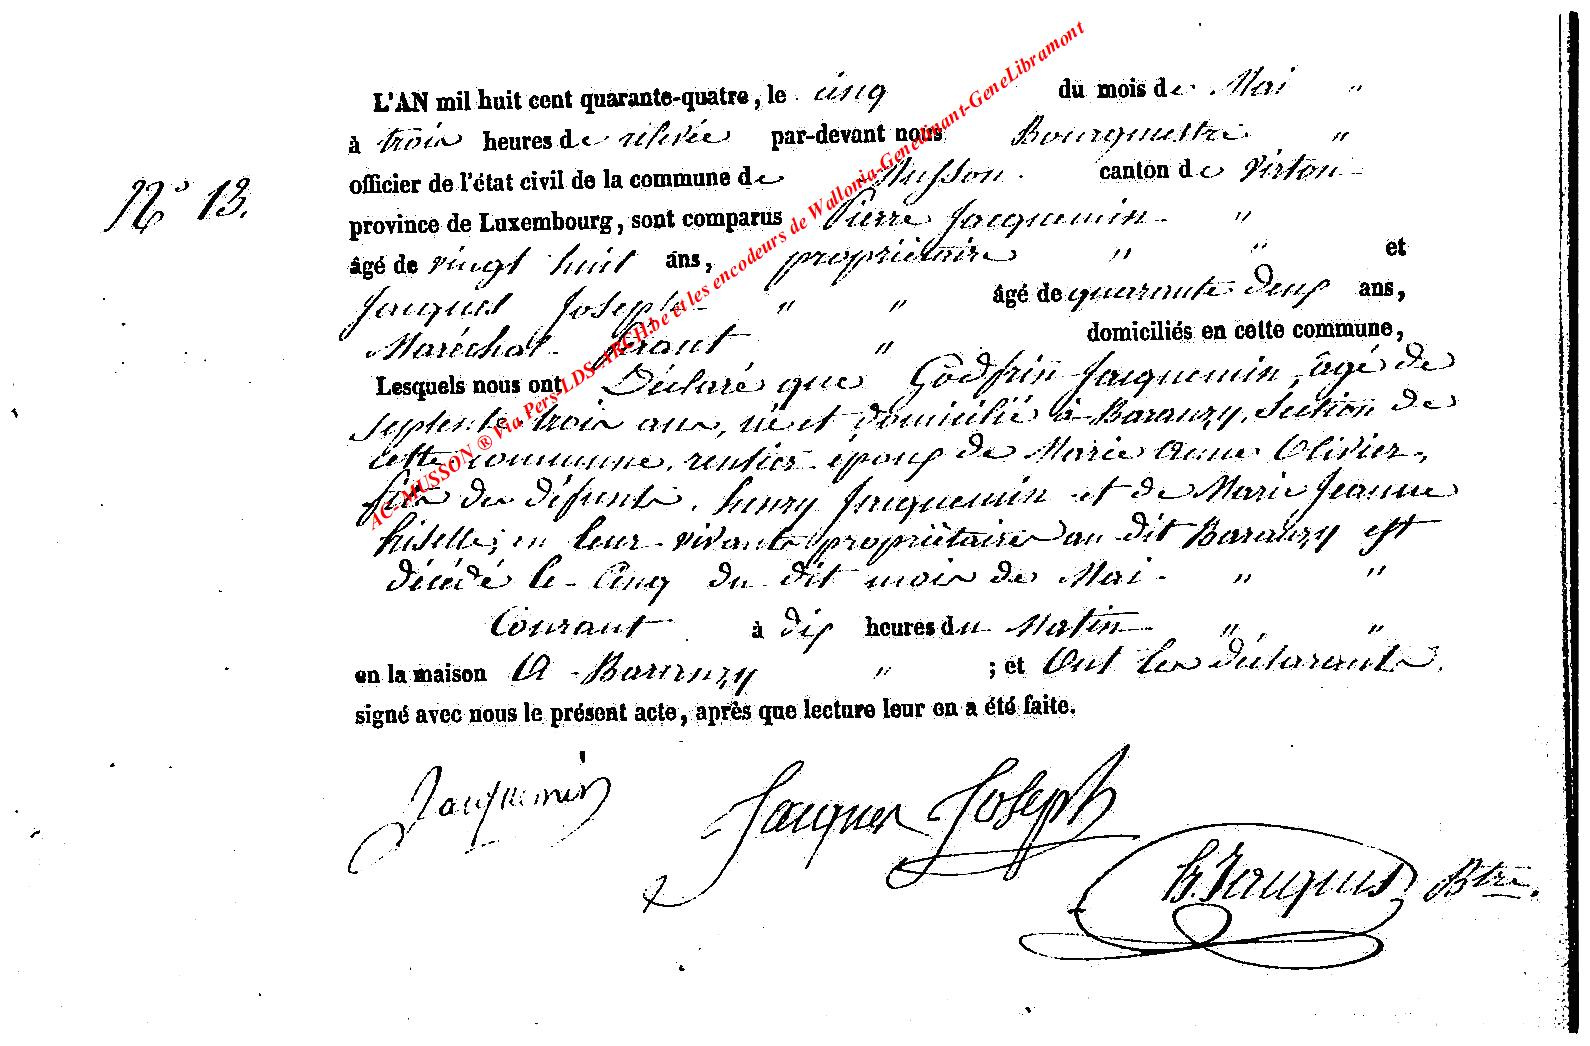 L'AN mil huit cent quarante-quatre, le cinq du mois de Mai "
à trois heures de rélevée par-devant nous Bourgmestre "
officier de l'état civil de la commune de Musson canton de Virton
N° 13.
province de Luxembourg, sont comparus Pierre Jacquemin "
âgé de vingt huit ans, propriétaire " " et
Jacques Joseph " " âgé de quarante deux ans,
Maréchal ferant " domiciliés en cette commune,
Lesquels nous ont Déclaré que Godfrin Jacquemin, âgé de
septente trois ans, né et domicilié à Baranzy, Section de
cette commune, rentier époux de Marie Anne Olivier,
fils des défunts henry Jacquemin et de Marie Jeanne
; en leur vivants propriétaires au dit Baranzy est
décédé le Cinq du dit mois de Mai " "
Courant à dix heures du Matin " "
en la maison A Baranzy " ; et Ont les déclarants
signé avec nous le présent acte, après que lecture leur en a été faite.
Jacquemin
Jacques Joseph
h. Jacques Btre.
AC-MUSSON ® Via Pers-LDS-ARCH.be et les encodeurs de Wallonia-Genedinant-GeneLibramont